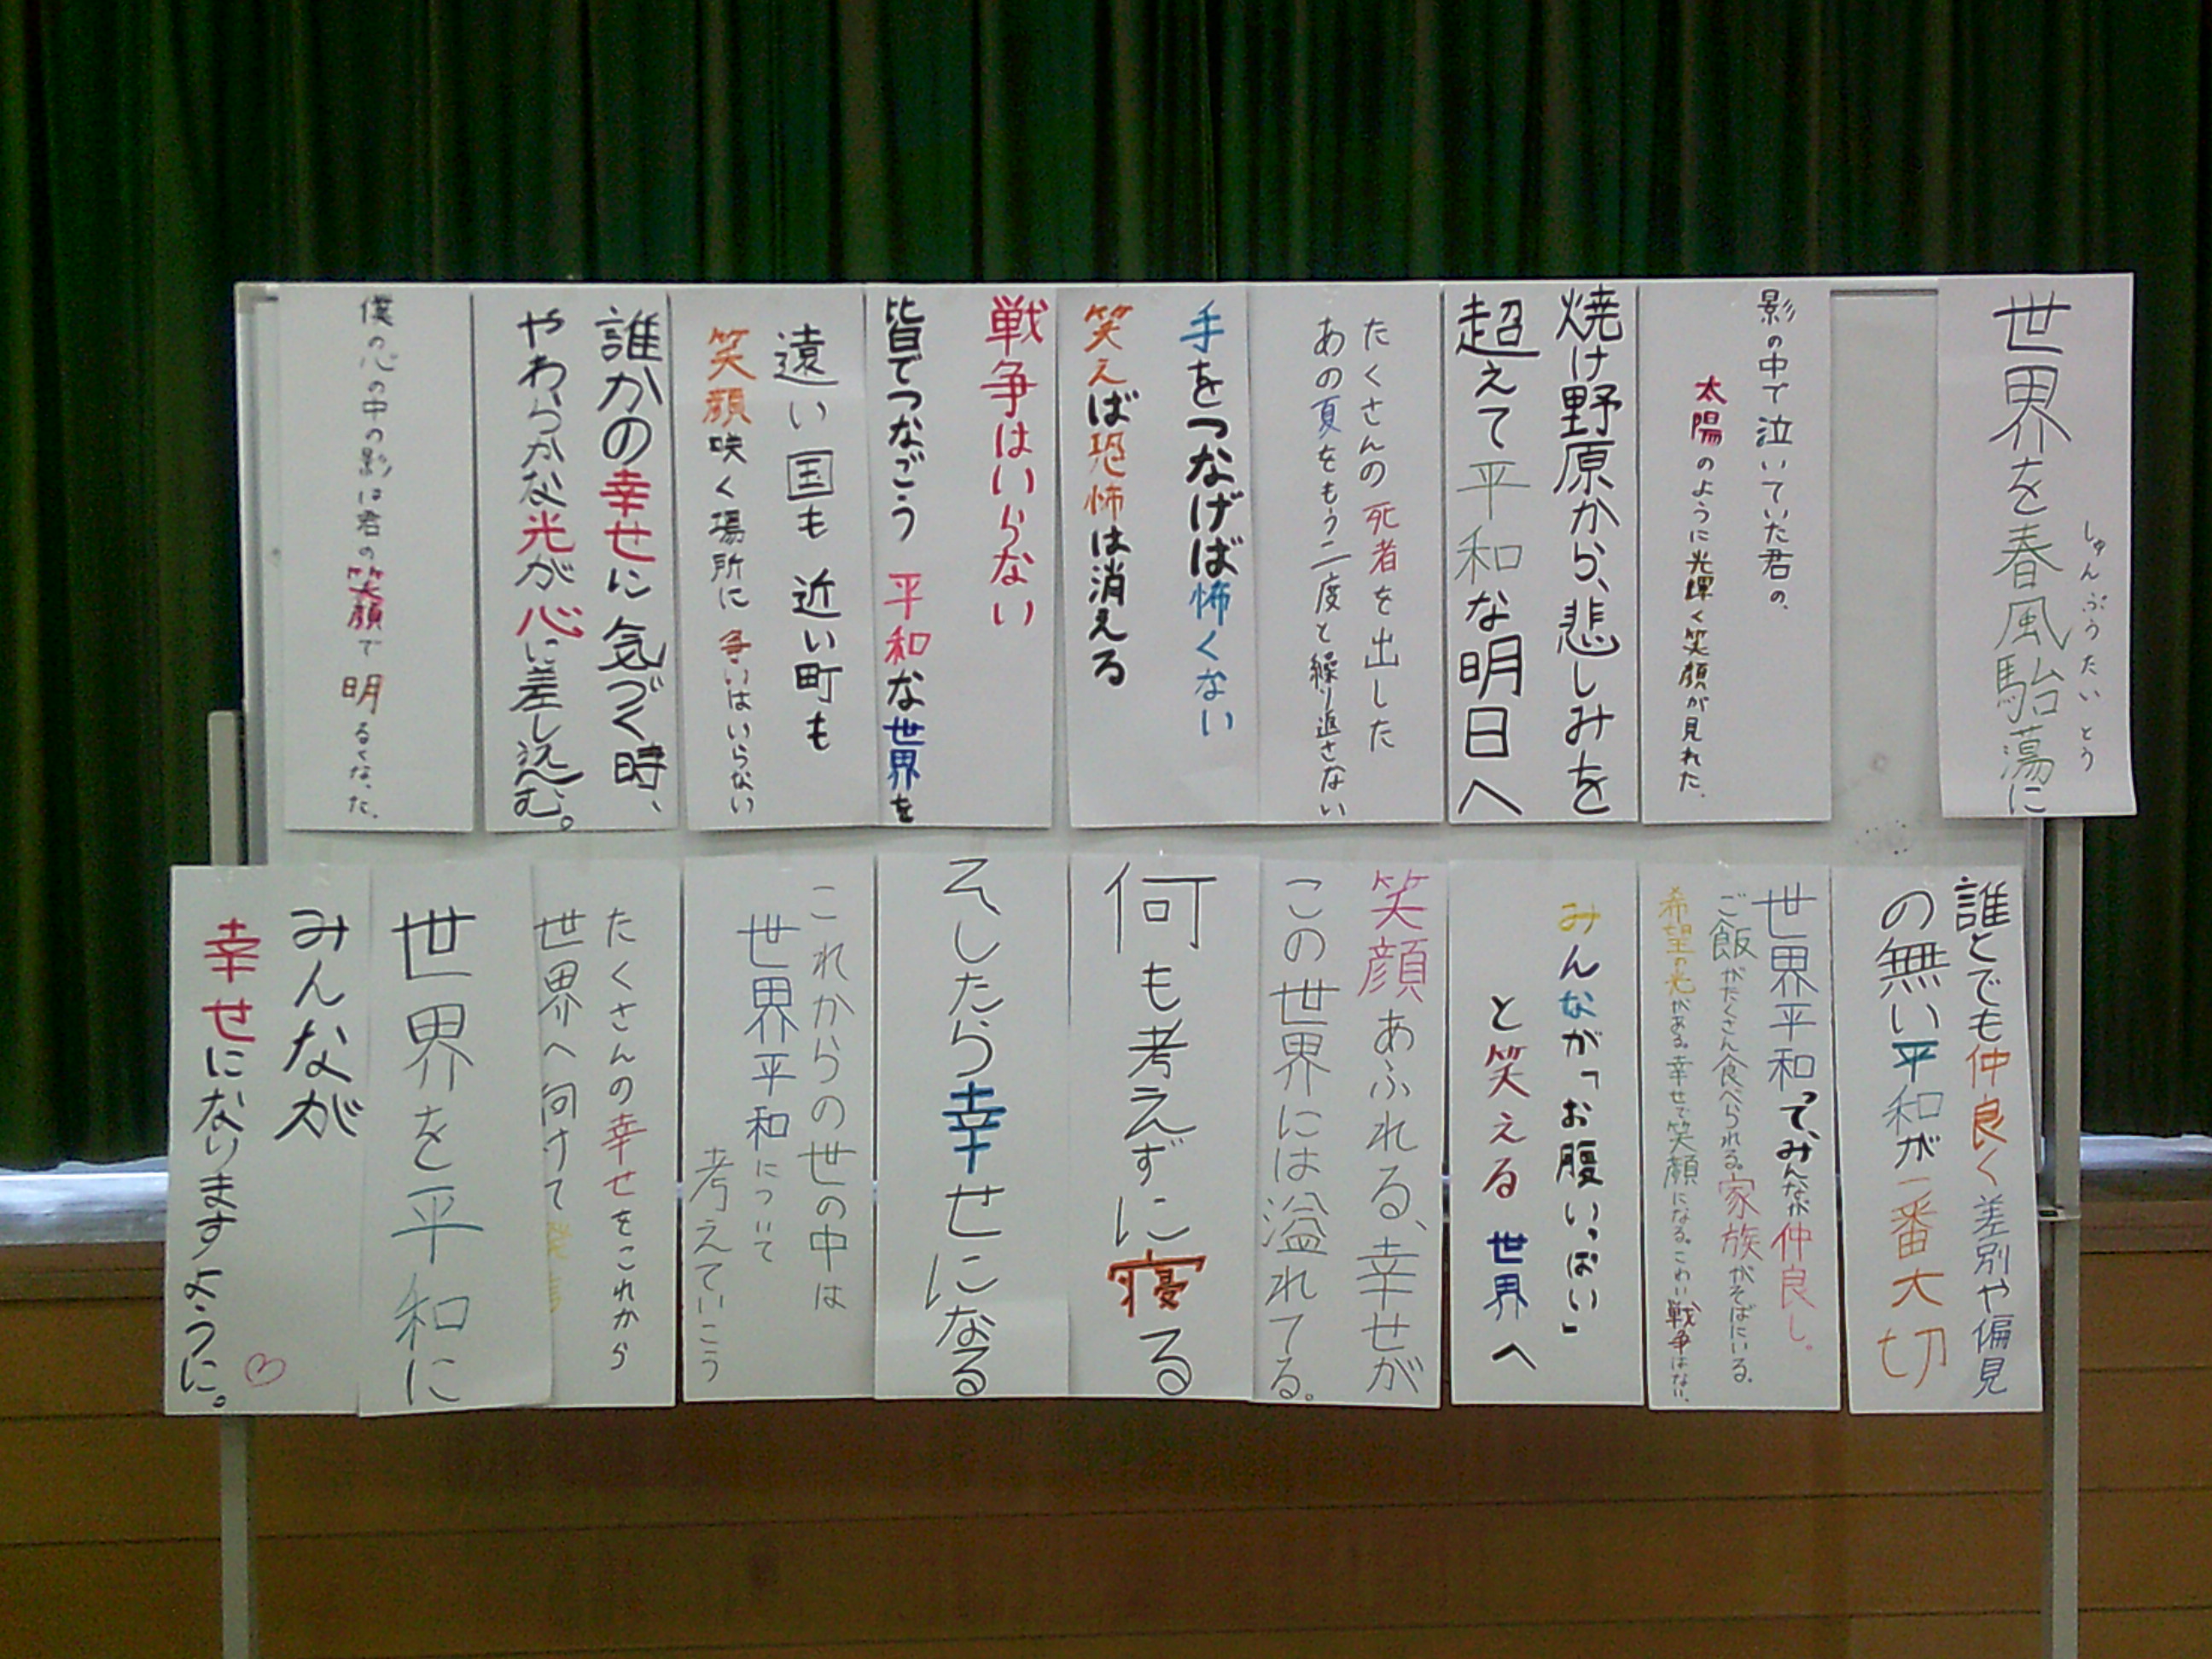 世界を春風駘蕩に
しゅんぷうたいとう
影の中で泣いていた君の、
太陽のように光輝く笑顔が見れた。
焼け野原から、悲しみを
超えて平和な明日へ
たくさんの死者を出した
あの夏をもう二度と繰り返さない
手をつなげば怖くない
笑えば恐怖は消える
戦争はいらない
皆でつなごう 平和な世界を
遠い国も 近い町も
笑顔咲く場所に 争いはいらない
誰かの幸せに気づく時、
やわらかな光が心に差し込む。
僕の心の中の影は君の笑顔で明るくなった。
誰とでも仲良く差別や偏見
の無い平和が一番大切
世界平和って、みんなが仲良し。
ご飯がたくさん食べられる。家族がそばにいる。
希望の光がある。幸せで笑顔になる。こわい戦争はない。
みんなが「お腹いっぱい」
と笑える世界へ
笑顔あふれる、幸せが
この世界には溢れてる。
何も考えずに寝る
そしたら幸せになる
これからの世の中は
世界平和について
考えていこう
たくさんの幸せをこれから
世界へ向けて発言
世界を平和に
みんなが
幸せになりますように。♡